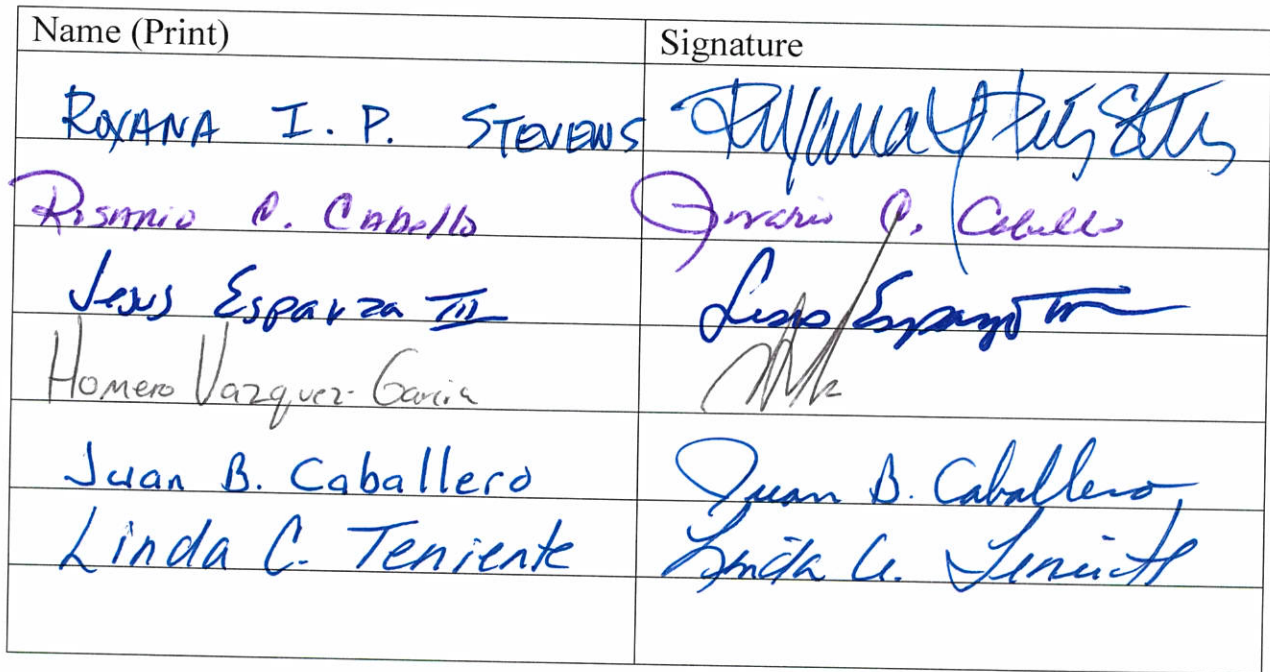 Name (Print) Signature
ROXANA I. P. STEVENS
Rosario C. Cabello Rosario C. Cabello
Jesus Esparza III Jesus Esparza III
Homero Vazquez-Garcia
Juan B. Caballero Juan B. Caballero
Linda C. Teniente Linda C. Teniente